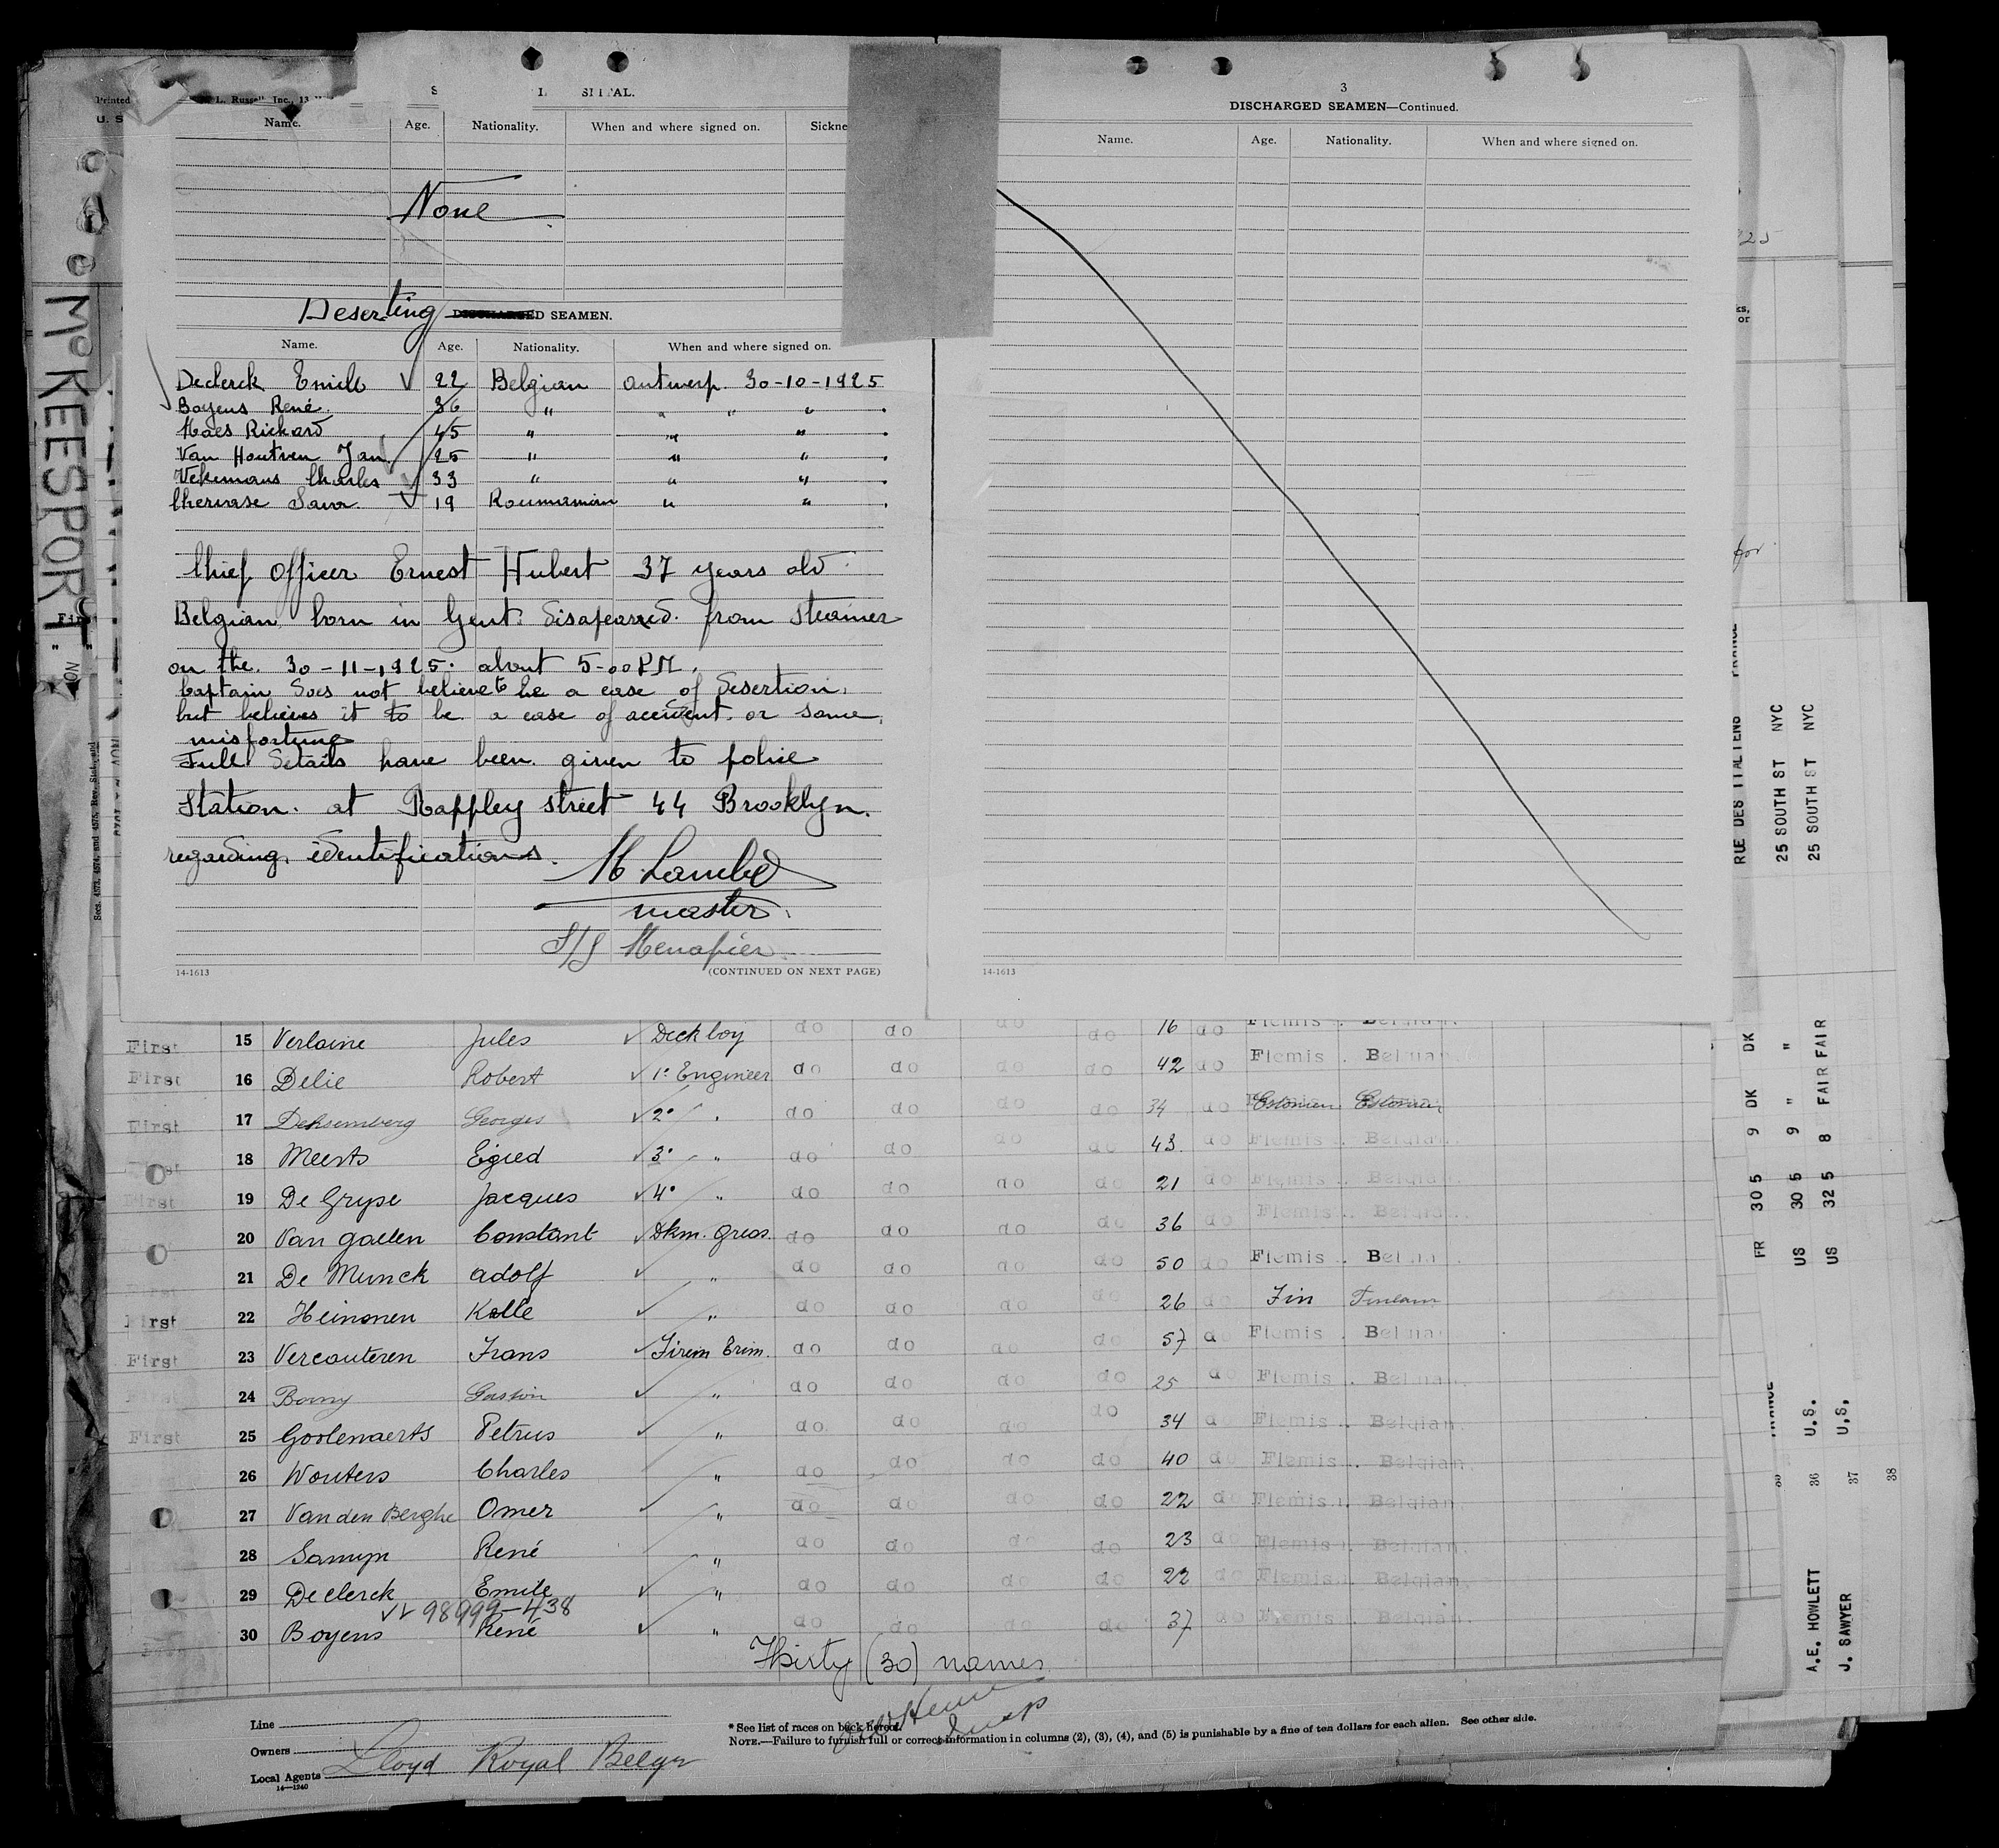 Printed L. Russell Inc., 13
U. S
SITAL.
Name. Age. Nationality. When and where signed on. Sickne
None
Deserting DISCHARGED SEAMEN.
Name. Age. Nationality. When and where signed on.
Declerck Emile 22 Belgian Antwerp. 30-10-1925
Boyens René. 36 " " " "
Maes Rickard 45 " " "
Van Houtven Jan 25 " " "
Vekemans Charles 33 " " "
Chervase Sava. 19 Roumanian " "
Chief Officer Ernest Hubert 37 years old
Belgian born in Gent: disapeared. from steamer
on the. 30-11-1925. about 5-00 PM.
Captain does not believe to be a case of desertion,
but believes it to be a case of accident. or some
misfortune
Full details have been given to police
Station. at Rappley street 44 Brooklyn.
regarding identifications.
M Lambe
master.
S/S Menapier.
14-1613 (CONTINUED ON NEXT PAGE)
3
DISCHARGED SEAMEN—Continued.
Name. Age. Nationality. When and where signed on.
14-1613
15 Verlaine Jules Deck boy do do do do 16 do Flemis. Belgian.
First 16 Delie Robert 1° Engineer do do do do 42 do Flemis. Belgian.
First 17 Deksemberg Georges 2° " do do do do 34 do Estonien Estonien
18 Meerts Egied 3° " do do do do 43. do Flemis. Belgian.
First 19 De Gryse Jacques 4° " do do do do 21 do Flemis. Belgian.
20 Van gaelen Constant Dkm. Greas. do do do do 36 do Flemis. Belgian.
21 De Munck adolf " do do do do 50 do Flemis. Belgian.
First 22 Heinonen Kalle " do do do do 26 do Fin
First 23 Vercauteren Frans Firem Erim. do do do do 57 do Flemis. Belgian
24 Borny Gaston " do do do do 25 do Flemis. Belgian.
First 25 Goolenaerts Petrus " do do do do 34 do Flemis. Belgian.
26 Wouters Charles " do do do do 40 do Flemis. Belgian.
27 Van den Berghe Omer " do do do do 22 do Flemis. Belgian.
28 Samyn René " do do do do 23 do Flemis. Belgian.
29 De clerck Emile " do do do do 22 do Flemis. Belgian.
98999-438
30 Boyens René " do do do 37 do Flemis. Belgian.
Thirty (30) names
Line
Owners
Local Agents Lloyd Royal Belge
14—1240
* See list of races on back hereof.
NOTE.—Failure to furnish full or correct information in columns (2), (3), (4), and (5) is punishable by a fine of ten dollars for each alien. See other side.
McKEESPORT
Secs. 4573, 4574, and 4575, Rev. Stat., and
RUE DES ITALIENS FRANCE
25 SOUTH ST NYC
25 SOUTH ST NYC
FR 30 5 9 DK DK
US 30 5 9 " "
US 32 5 8 FAIR FAIR
A.E. HOWLETT 36 U.S.
J. SAWYER 37 U.S.
38